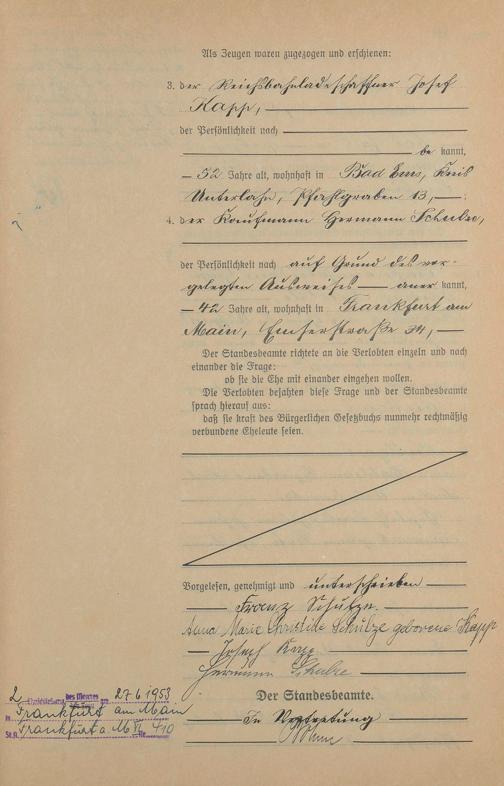 Als Zeugen waren zugezogen und erschienen:
3. der Reichsbahnladeschaffner Josef
Kapp,
der Persönlichkeit nach
be kannt,
52 Jahre alt, wohnhaft in Bad Ems, Kreis
Unterlahn, Pfahlgraben 13,
4. der Kaufmann Hermann Schulze,
der Persönlichkeit nach auf Grund des vor-
gelegten Ausweises aner kannt,
42 Jahre alt, wohnhaft in Frankfurt am
Main, Emserstraße 34,
Der Standesbeamte richtete an die Verlobten einzeln und nach
einander die Frage:
ob sie die Ehe mit einander eingehen wollen.
Die Verlobten bejahten diese Frage und der Standesbeamte
sprach hierauf aus:
daß sie kraft des Bürgerlichen Gesetzbuchs nunmehr rechtmäßig
verbundene Eheleute seien.
Vorgelesen, genehmigt und unterschrieben
Franz Schulze.
Anna Maria Christine Schulze geborene Kapp
Joseph Kapp
Hermann Schulze
Der Standesbeamte.
In Vertretung
2 des Mannes am 27.6.1953
in Frankfurt am Main
St.A. Frankfurt a.M VI Nr. 410